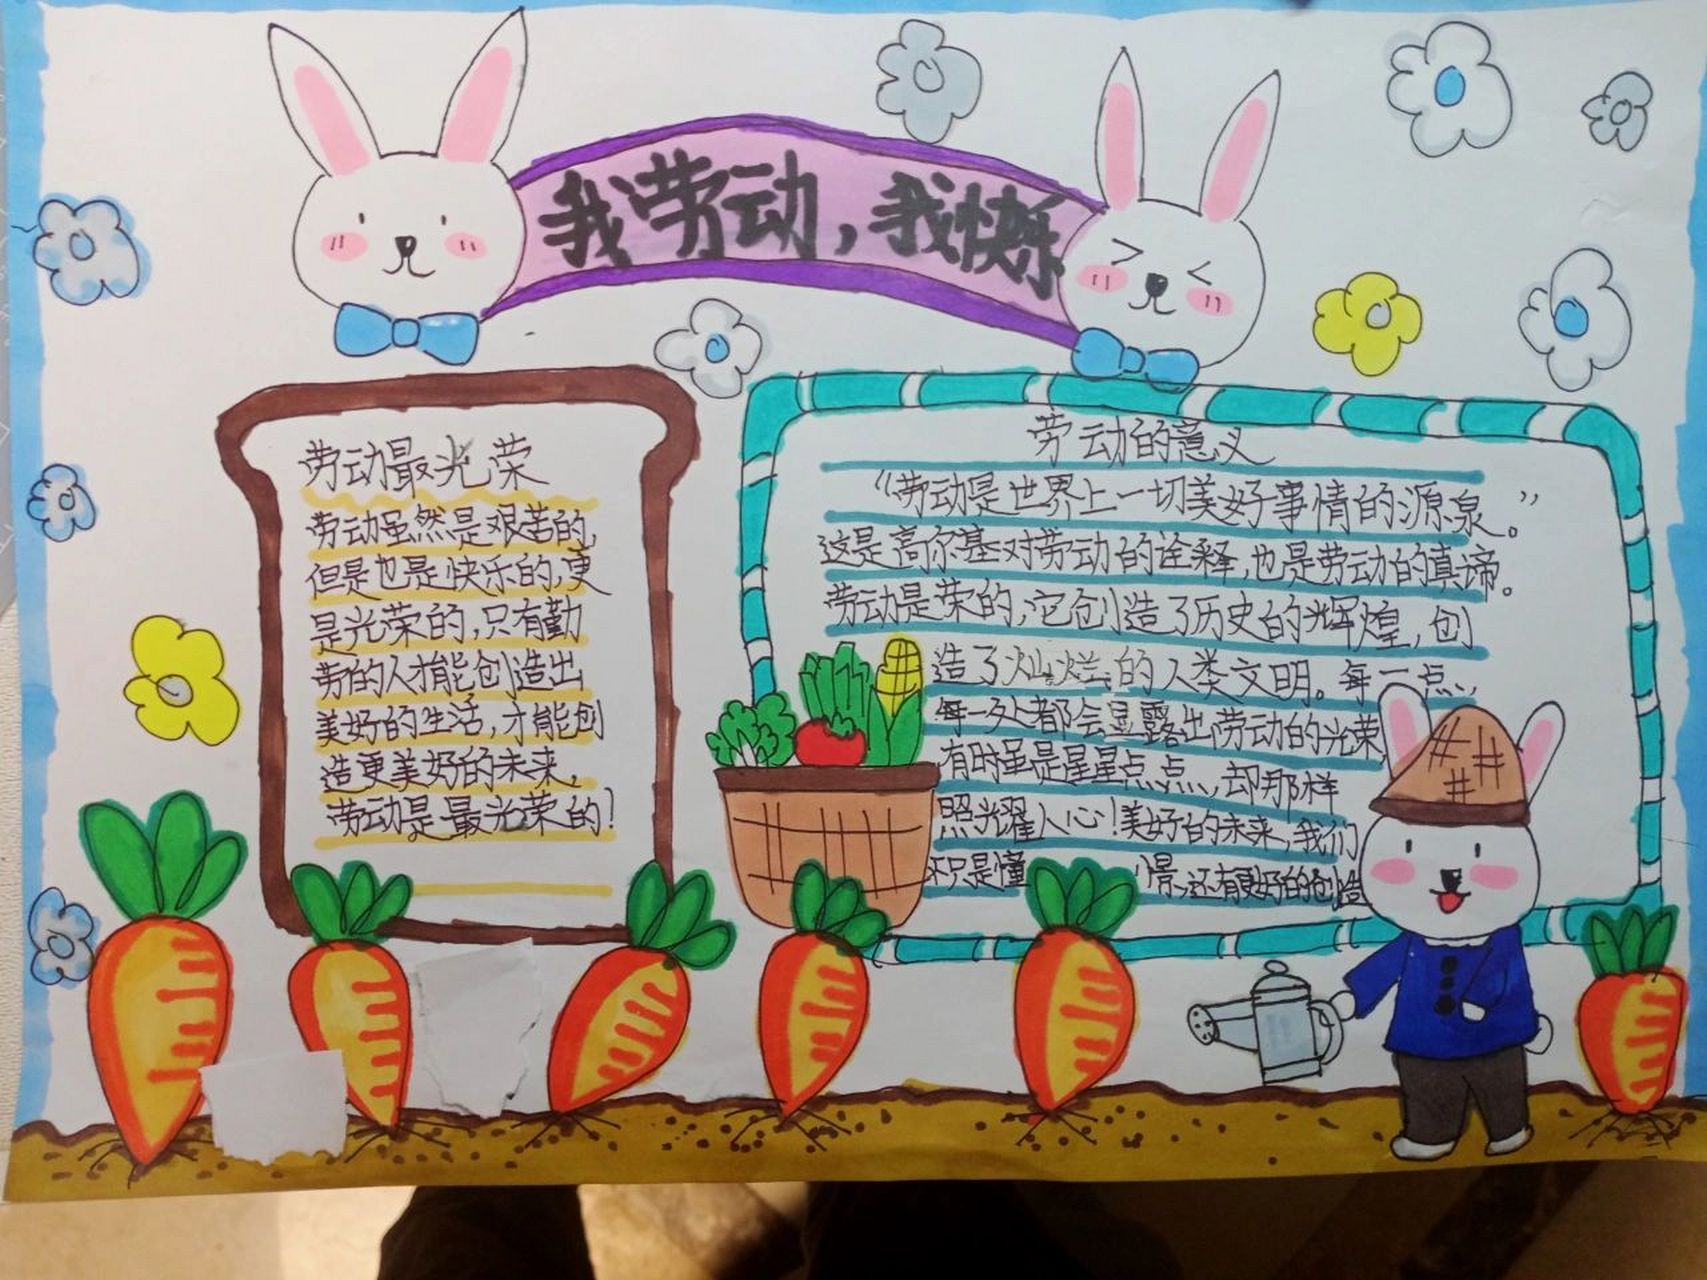 我劳动，我快乐
劳动最光荣
劳动虽然是艰苦的，
但是也是快乐的，更
是光荣的，只有勤
劳的人才能创造出
美好的生活，才能创
造更美好的未来，
劳动是最光荣的！
劳动的意义
“劳动是世界上一切美好事情的源泉。”
这是高尔基对劳动的诠释，也是劳动的真谛。
劳动是荣的，它创造了历史的辉煌，创
造了灿烂的人类文明。每一点，
每一处都会显露出劳动的光荣，
有时虽是星星点点，却那样
照光耀人心！美好的未来，我们
不只是懂 憬，还有更好的创造